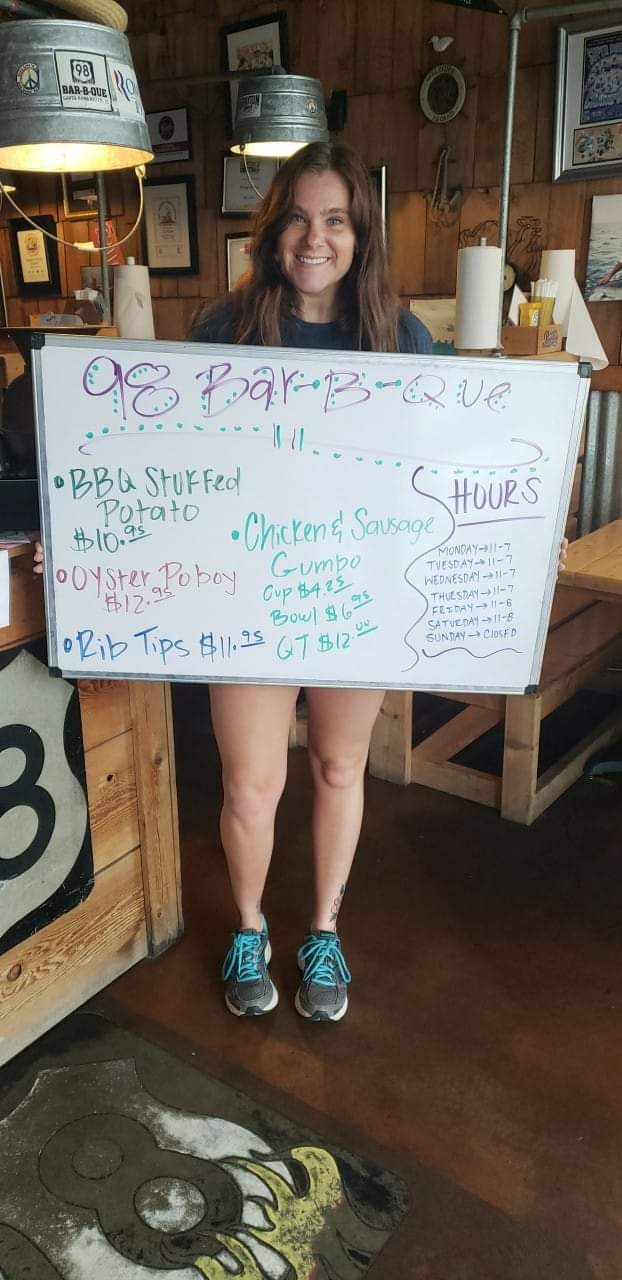 98
BAR-B-QUE
98 Bar-B-Que
• BBQ Stuffed
Potato
$10.95
• Oyster Poboy
$12.95
• Rib Tips $11.95
• Chicken & Sausage
Gumbo
Cup $4.25
Bowl $6.95
QT $12.00
HOURS
MONDAY→11-7
TUESDAY→11-7
WEDNESDAY→11-7
THURSDAY→11-7
FRIDAY→11-8
SATURDAY→11-8
SUNDAY→CLOSED
8
8